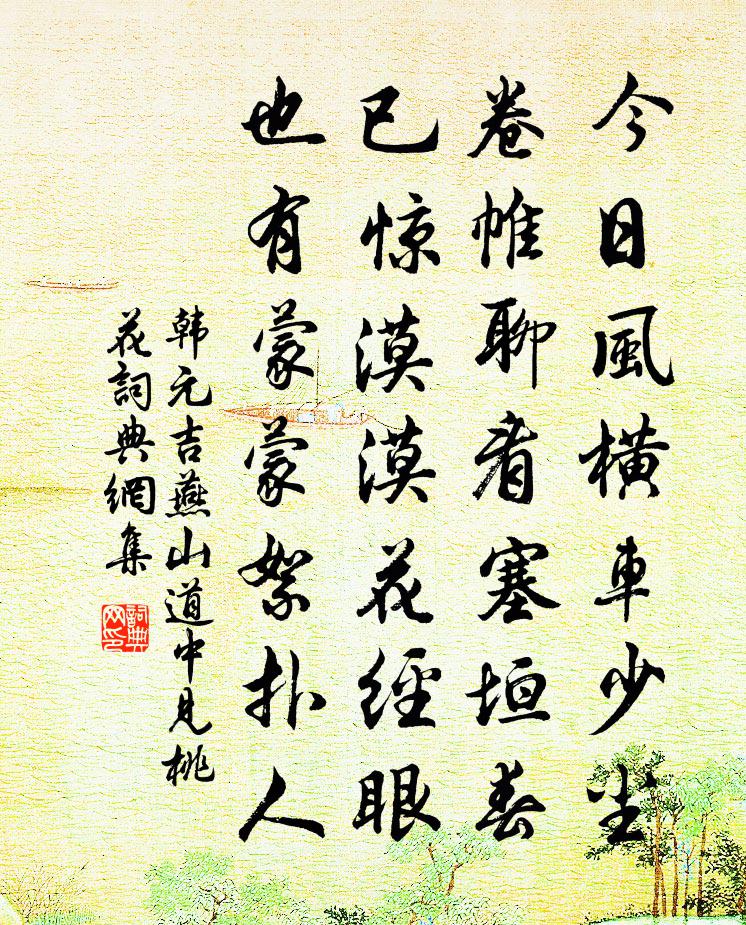 今日風橫車少尘
卷帷聊看塞垣春
已惊漠漠花經眼
也有蒙蒙絮扑人
韩元吉燕山道中見桃
花詞典網集
詞典
网印